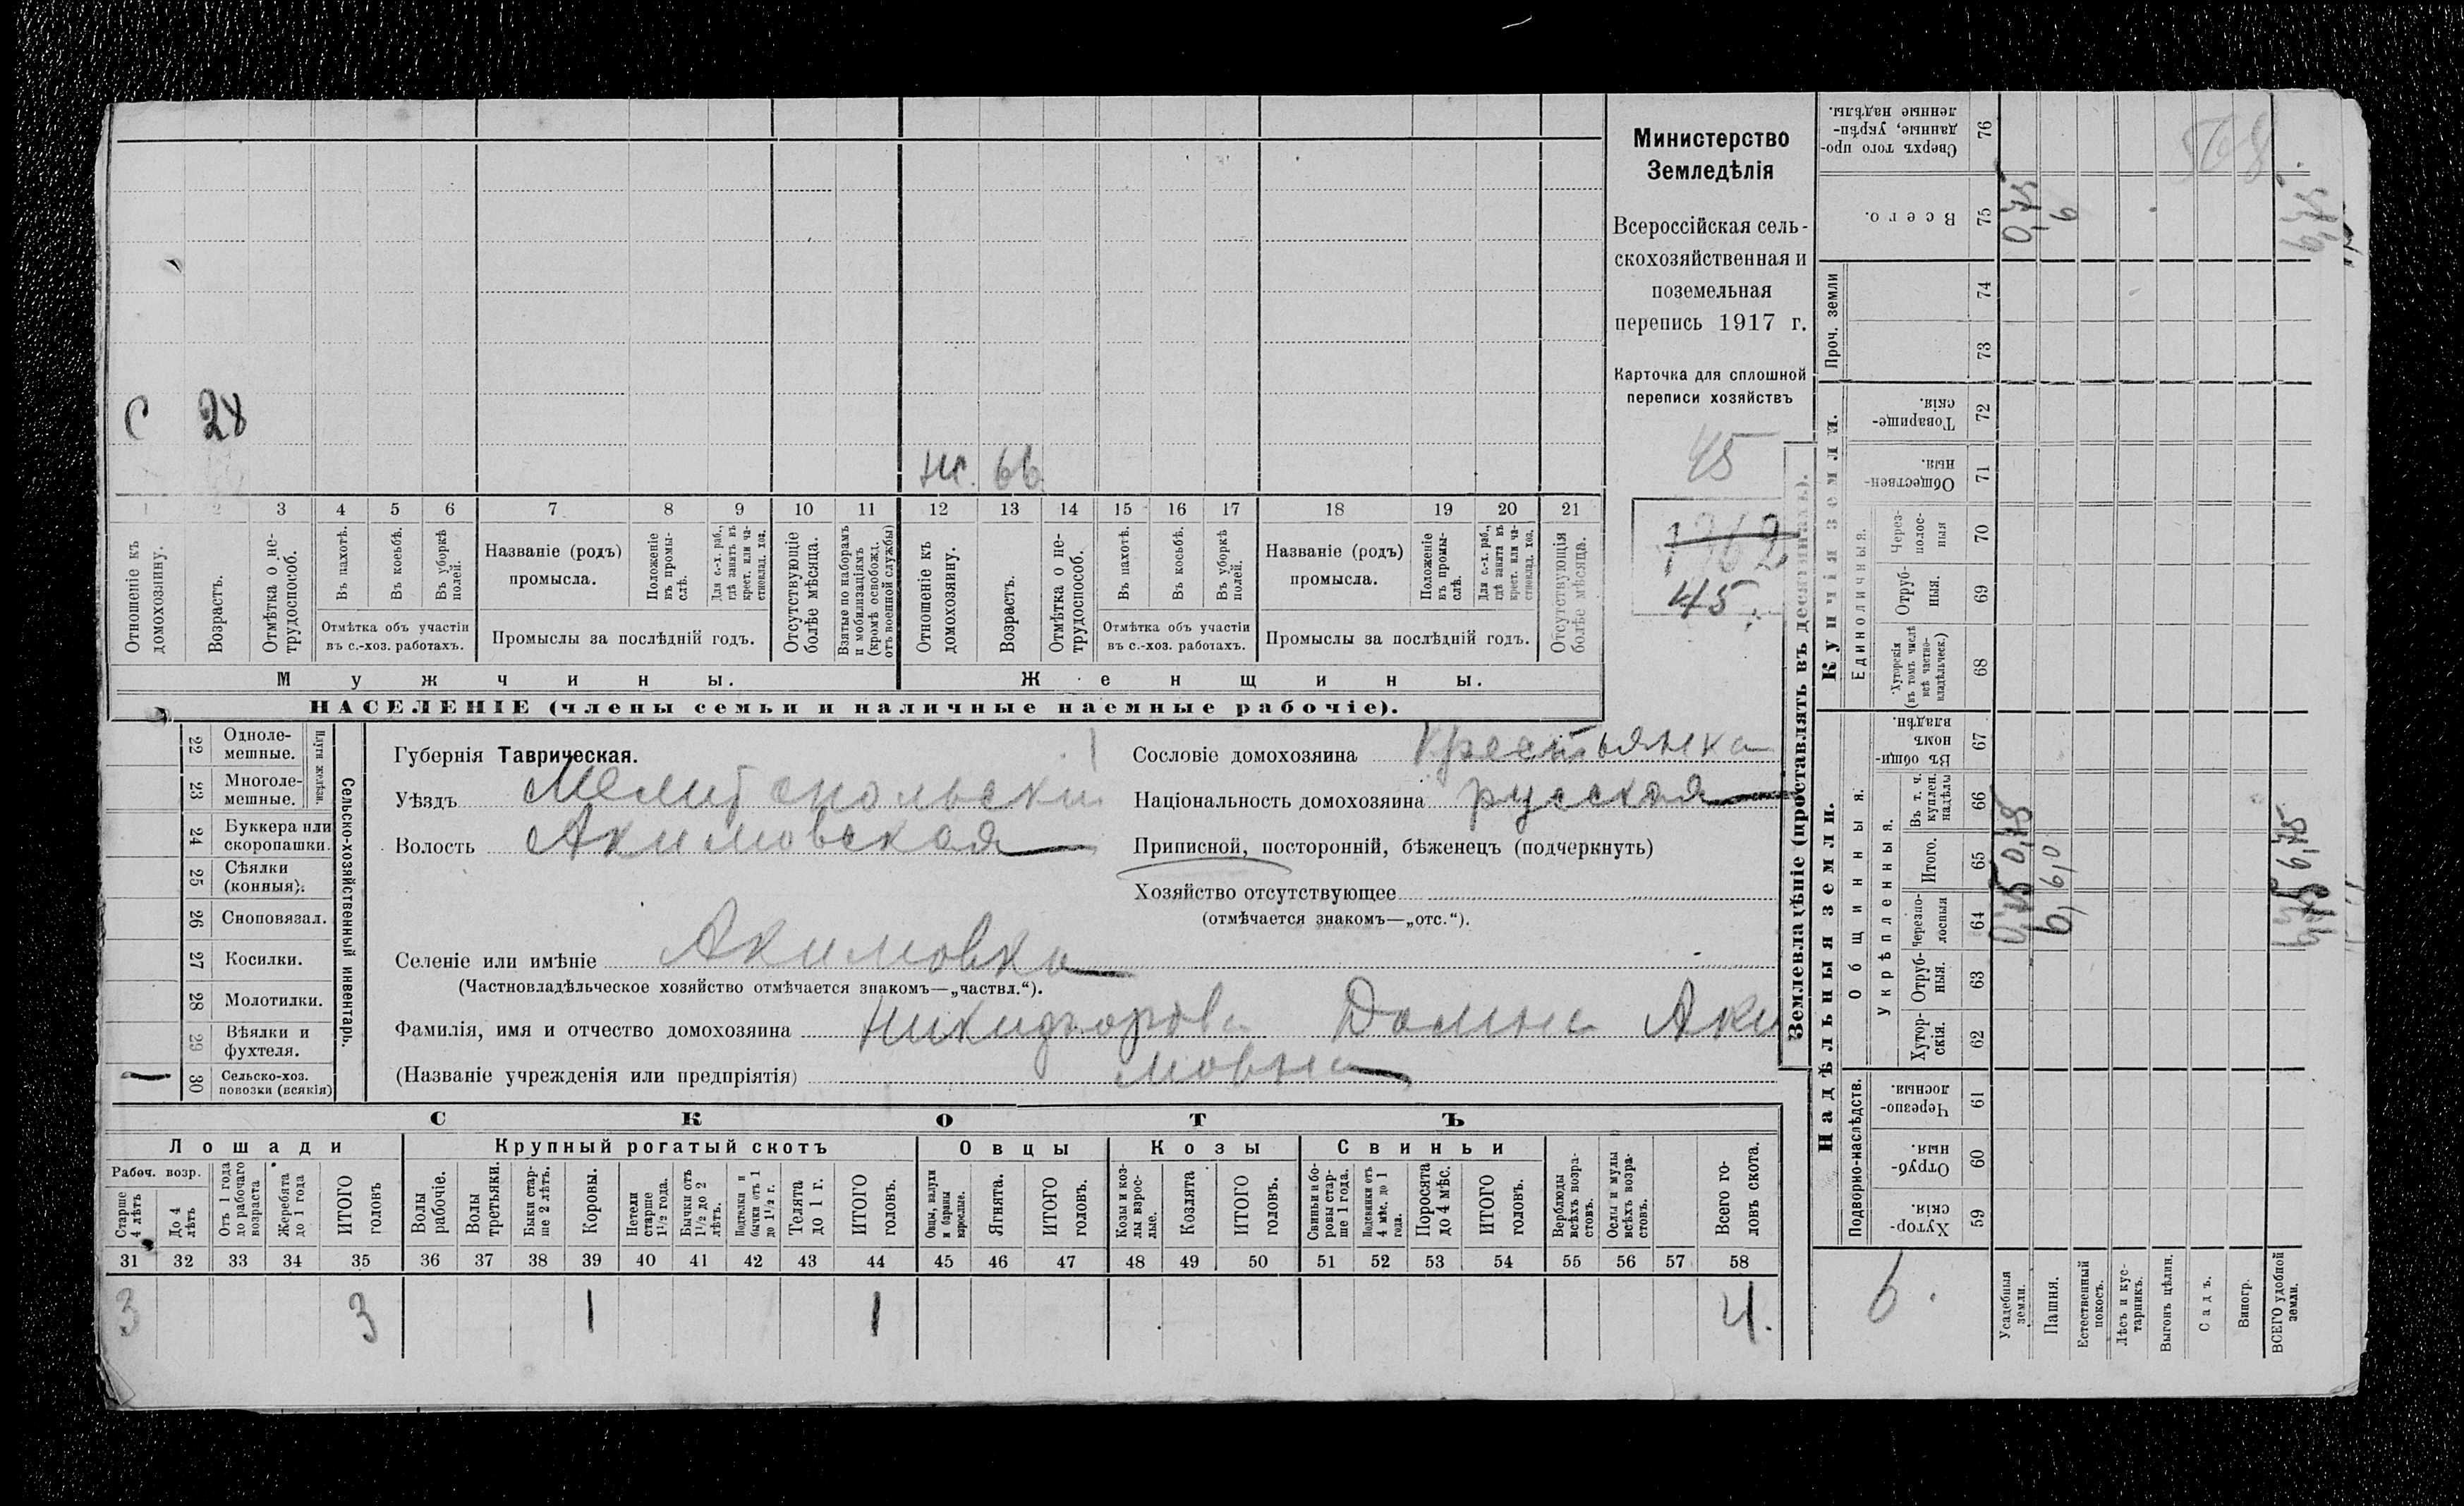 Министерство
Земледѣлія
Всероссійская сель-
скохозяйственная и
поземельная
перепись 1917 г.
Карточка для сплошной
переписи хозяйствъ
45
1962
45.
С 28
ж. 66.
1 2 3 4 5 6 7 8 9 10 11 12 13 14 15 16 17 18 19 20 21
Отношеніе къ
домохозяину.
Возрастъ.
Отмѣтка о не-
трудоспособ.
Въ пахотѣ.
Въ косьбѣ.
Въ уборкѣ
полей.
Отмѣтка объ участіи
въ с.-хоз. работахъ.
Названіе (родъ)
промысла.
Положеніе
въ промы-
слѣ.
Для с.-х. раб.,
гдѣ занятъ въ
крест. или ча-
стновлад. хоз.
Промыслы за послѣдній годъ.
Отсутствующіе
болѣе мѣсяца.
Взятые по наборамъ
и мобилизаціямъ
(кромѣ освобожд.
отъ военной службы)
Отношеніе къ
домохозяину.
Возрастъ.
Отмѣтка о не-
трудоспособ.
Въ пахотѣ.
Въ косьбѣ.
Въ уборкѣ
полей.
Отмѣтка объ участіи
въ с.-хоз. работахъ.
Названіе (родъ)
промысла.
Положеніе
въ промы-
слѣ.
Для с.-х. раб.,
гдѣ занята въ
крест. или ча-
стновлад. хоз.
Промыслы за послѣдній годъ.
Отсутствующія
болѣе мѣсяца.
Мужчины.
Женщины.
НАСЕЛЕНІЕ (члены семьи и наличные наемные рабочіе).
22 Одноле-
мешные.
23 Многоле-
мешные.
Плуги желѣзн.
24 Буккера или
скоропашки.
25 Сѣялки
(конныя).
26 Сноповязал.
27 Косилки.
28 Молотилки.
29 Вѣялки и
фухтеля.
30 Сельско-хоз.
повозки (всякія)
Сельско-хозяйственный инвентарь.
Губернія Таврическая.
Уѣздъ Мелитопольскій
Волость Акимовская
Селеніе или имѣніе Акимовка
(Частновладѣльческое хозяйство отмѣчается знакомъ—„частвл.“).
Фамилія, имя и отчество домохозяина Никифорова Домна Аки
мовна
(Названіе учрежденія или предпріятія)
Сословіе домохозяина Крестьянка
Національность домохозяина русская
Приписной, посторонній, бѣженецъ (подчеркнуть)
Хозяйство отсутствующее
(отмѣчается знакомъ—„отс.“).
СКОТЪ
Лошади
Рабоч. возр.
Старше
4 лѣтъ
До 4
лѣтъ
Отъ 1 года
до рабочаго
возраста
Жеребята
до 1 года
ИТОГО
головъ
Крупный рогатый скотъ
Волы
рабочіе.
Волы
третьяки.
Быки стар-
ше 2 лѣтъ.
Коровы.
Нетели
старше
1½ года.
Бычки отъ
1½ до 2
лѣтъ.
Подтелки и
бычки отъ 1
до 1½ г.
Телята
до 1 г.
ИТОГО
головъ.
Овцы
Овцы, валухи
и бараны
взрослые.
Ягнята.
ИТОГО
головъ.
Козы
Козы и коз-
лы взрос-
лые.
Козлята
ИТОГО
головъ.
Свиньи
Свиньи и бо-
ровы стар-
ше 1 года.
Подсвинки отъ
4 мѣс. до 1
года.
Поросята
до 4 мѣс.
ИТОГО
головъ.
Верблюды
всѣхъ возра-
стовъ.
Ослы и мулы
всѣхъ возра-
стовъ.
Всего го-
ловъ скота.
31 32 33 34 35 36 37 38 39 40 41 42 43 44 45 46 47 48 49 50 51 52 53 54 55 56 57 58
3 3 1 1 4.
Землевладѣніе (проставлять въ десятинахъ).
Надѣльныя земли.
Купчія земли.
Проч. земли
Подворно-наслѣдств.
Общинныя.
Укрѣпленныя.
Единоличныя.
Сверхъ того про-
данные, укрѣп-
ленные надѣлы.
76
Всего.
75
74
73
Товарище-
скія.
72
Обществен-
ныя.
71
Через-
полос-
ныя
70
Отруб-
ныя.
69
Хуторскія
(въ томъ числѣ
всѣ частно-
владѣльческ.)
68
Въ общин-
номъ
владѣн.
67
Въ т. ч.
куплен.
надѣлы
66
Итого.
65
Черезпо-
лосныя
64
Отруб-
ныя.
63
Хутор-
скія.
62
Черезпо-
лосныя.
61
Отруб-
ныя.
60
Хутор-
скія.
59
6.
Усадебныя
земли.
Пашня.
Естественный
покосъ.
Лѣсъ и кус-
тарникъ.
Выгонъ цѣлин.
Садъ.
Виногр.
ВСЕГО удобной
земли.